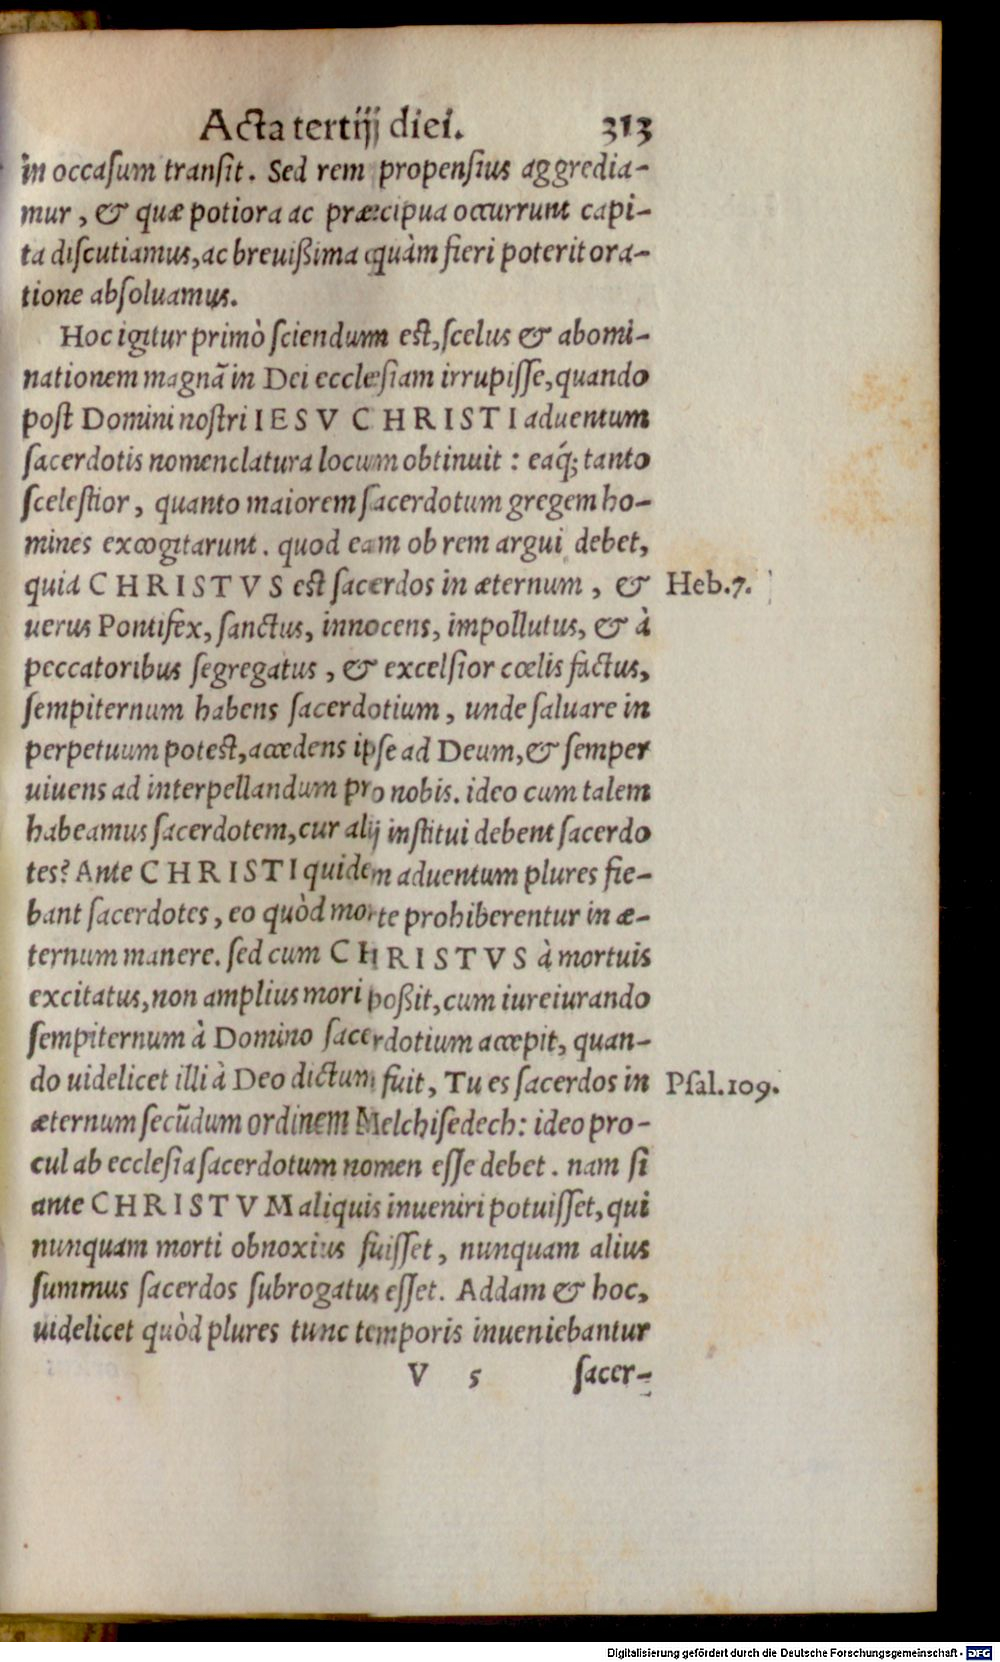 Acta tertij diei. 313
in occasum transit. Sed rem propensius aggredia-
mur, & quæ potiora ac præcipua occurrunt capi-
ta discutiamus, ac breuißima quàm fieri poterit ora-
tione absoluamus.
Hoc igitur primò sciendum est, scelus & abomi-
nationem magnã in Dei ecclesiam irrupisse, quando
post Domini nostri IESV CHRISTI aduentum
sacerdotis nomenclatura locum obtinuit : eaq́; tanto
scelestior, quanto maiorem sacerdotum gregem ho-
mines excogitarunt. quod eam ob rem argui debet,
quia CHRISTVS est sacerdos in æternum, & Heb.7.
uerus Pontifex, sanctus, innocens, impollutus, & à
peccatoribus segregatus, & excelsior cœlis factus,
sempiternum habens sacerdotium, unde saluare in
perpetuum potest, accedens ipse ad Deum, & semper
uiuens ad interpellandum pro nobis. ideo cum talem
habeamus sacerdotem, cur alij institui debent sacerdo
tes? Ante CHRISTI quidem aduentum plures fie-
bant sacerdotes, eo quòd morte prohiberentur in æ-
ternum manere. sed cum CHRISTVS à mortuis
excitatus, non amplius mori poßit, cum iureiurando
sempiternum à Domino sacerdotium accepit, quan-
do uidelicet illi à Deo dictum fuit, Tu es sacerdos in Psal.109.
æternum secũdum ordinem Melchisedech: ideo pro-
cul ab ecclesia sacerdotum nomen esse debet. nam si
ante CHRISTVM aliquis inueniri potuisset, qui
nunquam morti obnoxius fuisset, nunquam alius
summus sacerdos subrogatus esset. Addam & hoc,
uidelicet quòd plures tunc temporis inueniebantur
V 5 sacer-
Digitalisierung gefördert durch die Deutsche Forschungsgemeinschaft - DFG